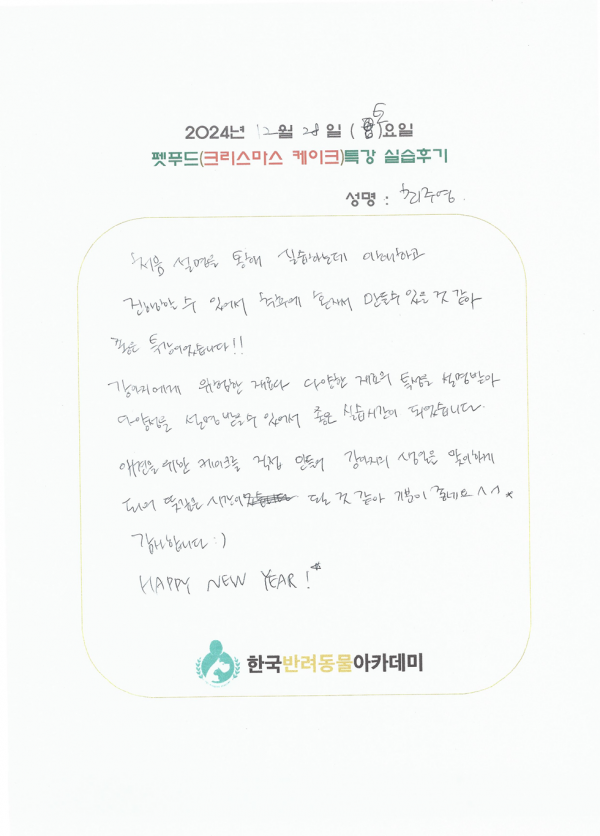 2024년 12월 28일 (토)요일
펫푸드(크리스마스 케이크)특강 실습후기
성명 : 최주영.
처음 설명을 통해 실습하는데 이해하고
진행할 수 있어서 혼자서 만들수 있을 것 같아
좋은 특강이었습니다!!
강아지에게 위험한 재료나 다양한 재료의 특성을 설명받아
다양성을 설명 받을 수 있어서 좋은 실습시간이 되었습니다.
애견을 위한 케이크를 직접 만들어 강아지의 생일을 맞이하게
되어 뜻깊은 시간이 되는 것 같아 기분이 좋네요 ^^*
감사합니다 :)
HAPPY NEW YEAR!*
한국반려동물아카데미